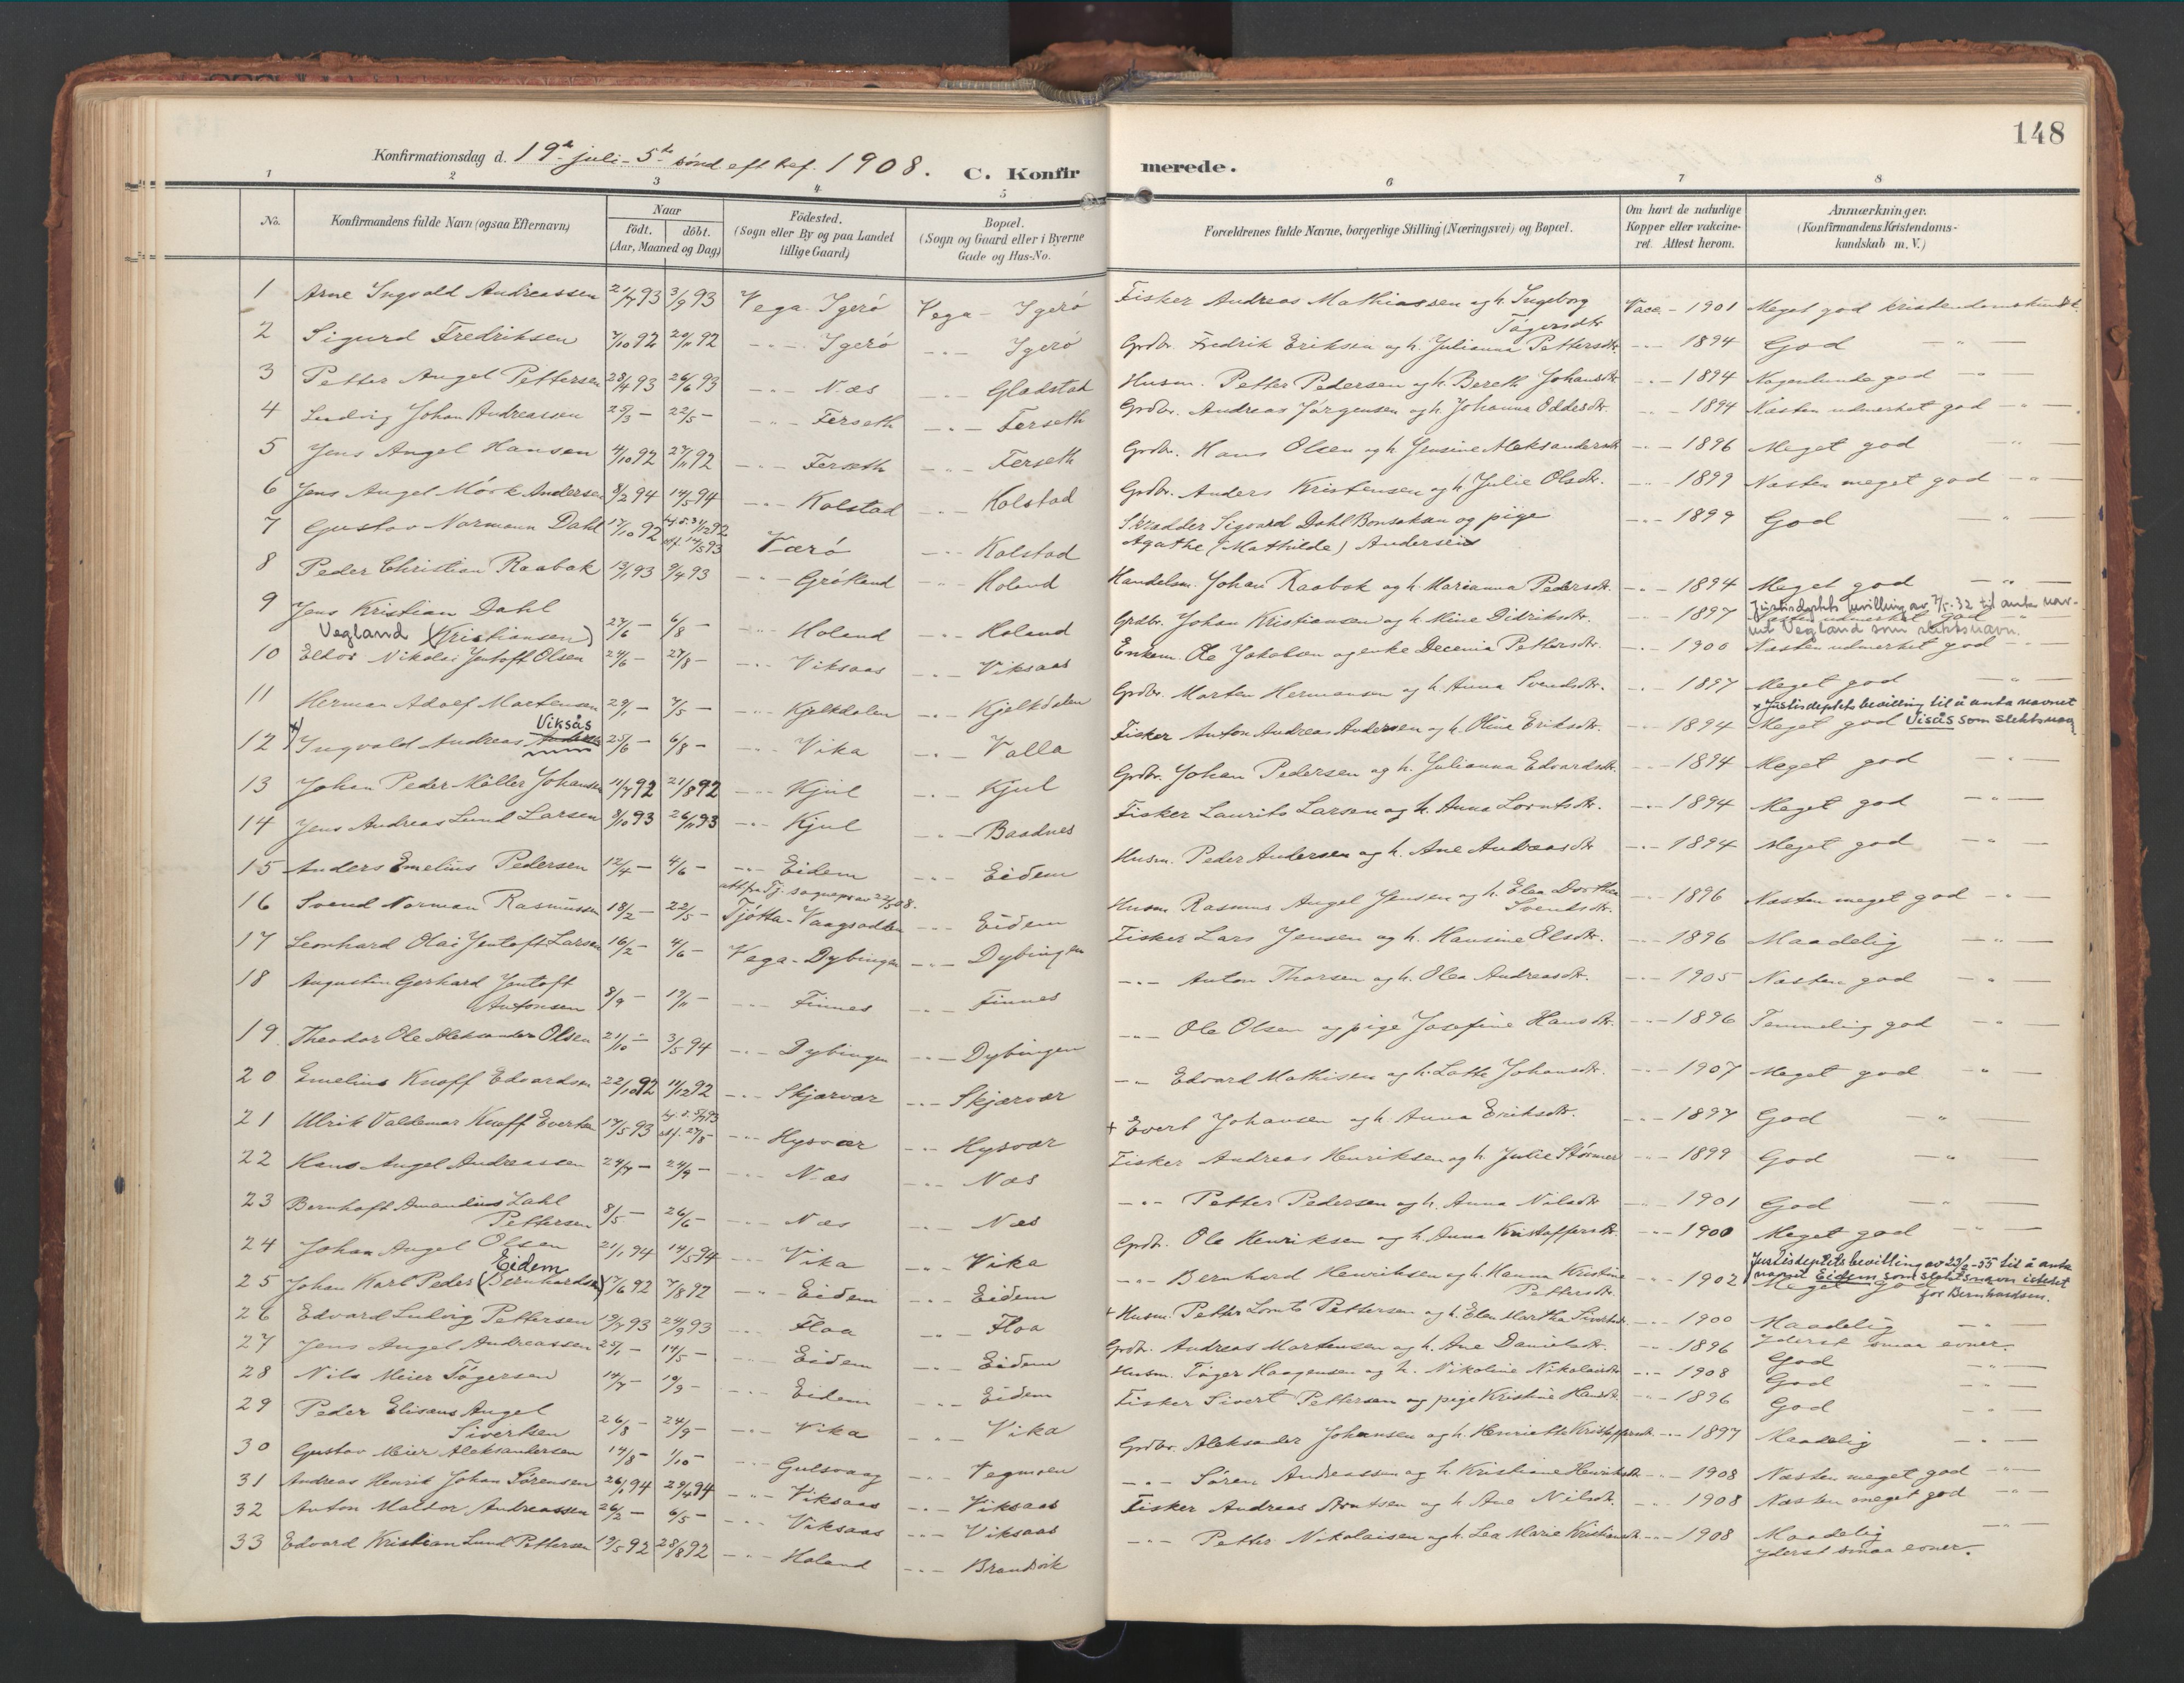 148
Konfirmationsdag d. 19de juli - 5te sönd eft tref. 1908. C. Konfirmerede.
1 2 3 4 5 6 7 8
No. Konfirmandens fulde Navn (ogsaa Efternavn) Naar födt. döbt. (Aar, Maaned og Dag) Födested. (Sogn eller By og paa Landet tillige Gaard) Bopæl. (Sogn og Gaard eller i Byerne Gade og Hus-No. Forældrenes fulde Navne, borgerlige Stilling (Næringsvei) og Bopæl. Om havt de naturlige Kopper eller vakcineret. Attest herom. Anmærkninger. (Konfirmandens Kristendomskundskab m. V.)
1 Arne Ingvald Andreassen 21/7 93 3/9 93 Vega - Igerö Vega - Igerö Fisker Andreas Mathiassen og h. Ingeborg Tögersdtr Vacc. - 1901 Meget god kristendomskundsk.
2 Sigurd Fredriksen 7/10 92 20/11 92 -"- Igerö -"- Igerö Grdbr. Fredrik Eriksen og h. Julianna Pettersdtr. -"- 1894 God -"-
3 Petter Angel Pettersen 28/4 93 26/6 93 -"- Næs -"- Gladstad Husm. Petter Pedersen og h. Bereth Johansdtr -"- 1894 Nogenlunde god -"-
4 Ludvig Johan Andreassen 25/3 - 22/5 - -"- Ferseth -"- Ferseth Grdbr. Andreas Jørgensen og h. Johanna Oddesdtr. -"- 1894 Næsten udmerket god -"-
5 Jens Angel Hansen 4/10 92 27/11 92 -"- Ferseth -"- Ferseth Grdbr. Hans Olsen og h. Jensine Aleksandersdtr -"- 1896 Meget god -"-
6 Jens Angel Mörk Andersen 8/2 94 14/5 94 -"- Kolstad -"- Kolstad Grdbr. Anders Kristensen og h. Julie Olsdtr. -"- 1899 Næsten meget god -"-
7 Gustav Normann Dahl 17/10 92 hj. d. 31/12 92 stf. 14/5 93 Værö -"- Kolstad Skrædder Sigvard Dahl Bonsaksen og pige Agathe (Mathilde) Andersen -"- 1899 God -"-
8 Peder Christian Raabak 13/1 93 9/4 93 -"- Grötland -"- Holand Handelsm. Johan Raabak og h. Marianna Pedersdtr. -"- 1894 Meget god -"-
9 Jens Kristian Dahl Vegland (Kristiansen) 27/6 - 6/8 - -"- Holand -"- Holand Grdbr. Johan Kristiansen og h. Mine Didriksdtr. -"- 1897 Næsten udmerket god Justisdeptets bevilling av 7/5-32 til anta navnet Vegland som slektsnavn.
10 Eltor Nikolai Jentoft Olsen 24/6 - 27/8 - -"- Viksaas -"- Viksaas Enkem. Ole Jakobsen og enke Decenia Pettersdtr. -"- 1900 Næsten udmerket god -"-
11 Herman Adolf Martensen 29/1 - 7/5 - -"- Kjelkdalen -"- Kjelkdalen Grdbr. Marten Hermansen og h. Anna Svendsdtr. -"- 1897 Meget god -"-
12 x) Ingvald Andreas Andersen Viksås 25/6 - 6/8 - -"- Vika -"- Valla Fisker Anton Andreas Andersen og h. Oline Eriksdtr. -"- 1894 Meget god x Justisdeptets bevilling til å anta navnet Visås som slektsnavn
13 Johan Peder Möller Johansen 11/7 92 21/8 92 -"- Kjul -"- Kjul Grdbr. Johan Pedersen og h. Julianna Edvardsdtr. -"- 1894 Meget god -"-
14 Jens Andreas Lund Larsen 8/10 93 26/11 93 -"- Kjul -"- Baadnes Fisker Laurits Larsen og h. Anna Lorntsdtr. -"- 1894 Meget god -"-
15 Anders Emelius Pedersen 12/4 - 4/6 - -"- Eidem -"- Eidem Husm. Peder Andersen og h. Ane Andreasdtr -"- 1894 Meget god -"-
16 Svend Norman Rasmussen 18/2 - 22/5 - att fra Tj. sognepr av 22/5 08. Tjötta - Vaagsodden -"- Eidem Husm Rasmus Angel Jensen og h. Elea Dorthea Svendsdtr. -"- 1896 Næsten meget god -"-
17 Leonhard Olai Jentoft Larsen 16/2 - 4/6 - Vega - Dybingen -"- Dybingen Fisker Lars Jensen og h. Hansine Olsdtr. -"- 1896 Maadelig -"-
18 Augustin Gerhard Jentoft Antonsen 8/9 - 19/11 - -"- Finnes -"- Finnes -"- Anton Thorsen og h. Olea Andreasdtr. -"- 1905 Næsten god -"-
19 Theodor Ole Aleksander Olsen 21/10 - 3/5 94 -"- Dybingen -"- Dybingen -"- Ole Olsen og pige Josefine Hansdtr. -"- 1896 Temmelig god -"-
20 Emelius Knoff Edvardsen 22/10 92 11/12 92 -"- Skjærvær -"- Skjærvær -"- Edvard Mathisen og h. Lotte Johansdtr. -"- 1907 Meget god -"-
21 Ulrik Valdemar Knoff Evertsen 17/5 93 hj. d. 5/7 93 stf. 27/8 - -"- Hysvær -"- Hysvær + Evert Johansen og h. Anna Eriksdtr. -"- 1897 God -"-
22 Hans Angel Andreassen 24/7 - 24/9 - -"- Næs -"- Næs Fisker Andreas Henriksen og h. Julie Störmer -"- 1899 God -"-
23 Bernhoft Amandius Zahl Pettersen 8/5 - 26/6 - -"- Næs -"- Næs -"- Petter Pedersen og h. Anna Nilsdtr -"- 1901 God -"-
24 Johan Angel Olsen 21/1 94 14/5 94 -"- Vika -"- Vika Grdbr. Ole Henriksen og h. Anna Kristoffersdtr. -"- 1900 Meget god -"-
25 Johan Karl Peder (Bernhardsen) Eidem 17/6 92 7/8 92 -"- Eidem -"- Eidem -"- Bernhard Henriksen og h. Hanna Kristine Pettersdtr. -"- 1902 Meget god Justisdeptets bevilling av 23/2-55 til å anta navnet Eidem som slektsnavn istedet for Bernhardsen.
26 Edvard Ludvig Pettersen 19/7 93 24/9 93 -"- Floa -"- Floa + Husm. Petter Lornts Pettersen og h. Elen Martha Sivertsdtr -"- 1900 Maadelig -"-
27 Jens Angel Andreassen 25/1 - 14/5 - -"- Eidem -"- Eidem Grdbr. Andreas Martensen og h. Ane Danielsdtr. -"- 1896 Yderst smaa evner. God
28 Nils Meier Tögersen 14/7 - 10/9 - -"- Eidem -"- Eidem Husm. Töger Haagensen og h. Nikoline Nikolaisdtr -"- 1908 God -"-
29 Peder Elisæus Angel Sivertsen 26/8 - 24/9 - -"- Vika -"- Vika Fisker Sivert Pettersen og pige Kristine Hansdtr. -"- 1896 God -"-
30 Gustav Meier Aleksandersen 14/8 - 1/10 - -"- Gulsvaag -"- Vegmoen Grdbr. Aleksander Johansen og h. Henriette Kristoffersdtr. -"- 1897 Maadelig -"-
31 Andreas Henrik Johan Sörensen 26/1 94 29/4 94 -"- Viksaas -"- Viksaas -"- Sören Andreassen og h. Kristiane Henriksdtr -"- 1908 Næsten meget god -"-
32 Anton Maltor Andreassen 26/2 - 6/5 - -"- Viksaas -"- Viksaas Fisker Andreas Arntsen og h. Ane Nilsdtr. -"- 1908 Næsten meget god -"-
33 Edvard Kristian Lund Pettersen 19/5 92 28/8 92 -"- Holand -"- Brandvik -"- Petter Nikolaisen og h. Lea Marie Kristiansdtr -"- 1908 Maadelig yderst smaa evner.